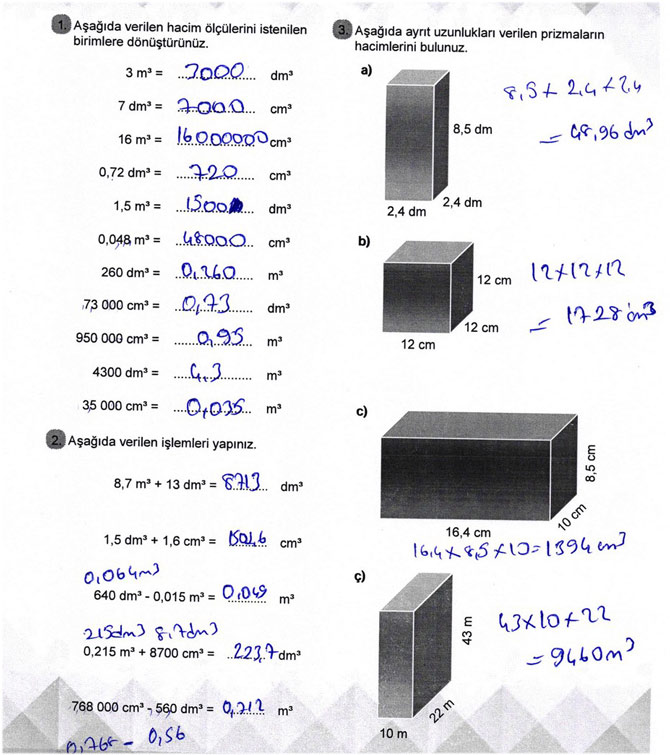 1. Aşağıda verilen hacim ölçülerini istenilen
birimlere dönüştürünüz.
3 m³ = 3000 dm³
7 dm³ = 7000 cm³
16 m³ = 16000000 cm³
0,72 dm³ = 720 cm³
1,5 m³ = 1500 dm³
0,048 m³ = 48000 cm³
260 dm³ = 0,260 m³
73 000 cm³ = 0,73 dm³
950 000 cm³ = 0,95 m³
4300 dm³ = 4,3 m³
35 000 cm³ = 0,035 m³
2. Aşağıda verilen işlemleri yapınız.
8,7 m³ + 13 dm³ = 8713 dm³
1,5 dm³ + 1,6 cm³ = 1501,6 cm³
0,064m³
640 dm³ - 0,015 m³ = 0,049 m³
215dm³ 8,7dm³
0,215 m³ + 8700 cm³ = 223,7 dm³
768 000 cm³ - 560 dm³ = 0,212 m³
0,768 - 0,56
3. Aşağıda ayrıt uzunlukları verilen prizmaların
hacimlerini bulunuz.
a)
8,5 x 2,4 x 2,4
= 48,96 dm³
8,5 dm
2,4 dm
2,4 dm
b)
12 cm
12 cm
12 cm
12x12x12
= 1728 cm³
c)
8,5 cm
10 cm
16,4 cm
16,4 x 8,5 x 10 = 1394 cm³
ç)
43 m
22 m
10 m
43x10x22
= 9460m³